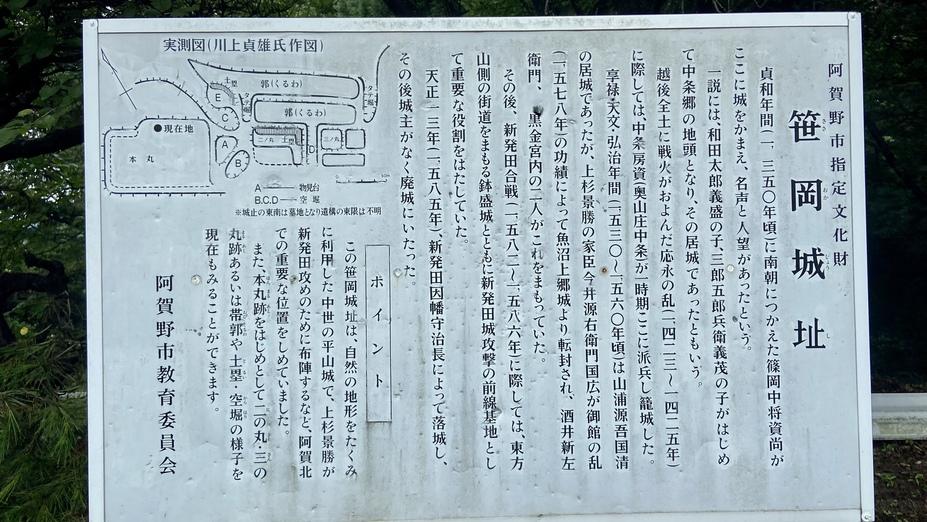 阿賀野市指定文化財
笹岡城址
貞和年間(一、三五〇年頃)に南朝につかえた篠岡中将資尚が
ここに城をかまえ、名声と人望があったという。
一説には、和田太郎義盛の子、三郎五郎兵衛義茂の子がはじめ
て中条郷の地頭となり、その居城であったともいう。
越後全土に戦火がおよんだ応永の乱(一四二三〜一四二五年)
に際しては、中条房資(奥山庄中条)が一時期ここに派兵し籠城した。
享禄・天文・弘治年間(一五三〇〜一五六〇年頃)は山浦源吾国清
の居城であったが、上杉景勝の家臣今井源右衛門国広が御館の乱
(一、五七八年)の功績によって魚沼上郷城より転封され、酒井新左
衛門、黒金宮内の二人がこれをまもっていた。
その後、新発田合戦(一五八二〜一五八六年)に際しては、東方
山側の街道をまもる鉢盛城とともに新発田城攻撃の前線基地とし
て重要な役割をはたしていた。
天正一三年(一、五八五年)、新発田因幡守治長によって落城し、
その後城主がなく廃城にいたった。
実測図(川上貞雄氏作図)
郭(くるわ)
郭(くるわ)
土塁
タテ堀
タテ堀
E
C
A
B
D
二ノ丸
土塁
三ノ丸
●現在地
本丸
A――物見台
B.C.D――空堀
※城止の東南は墓地となり遺構の東限は不明
ポイント
この笹岡城址は、自然の地形をたくみ
に利用した中世の平山城で、上杉景勝が
新発田攻めのために布陣するなど、阿賀北
での重要な位置をしめていました。
また、本丸跡をはじめとして二の丸・三の
丸跡あるいは帯郭や土塁・空堀の様子を
現在もみることができます。
阿賀野市教育委員会